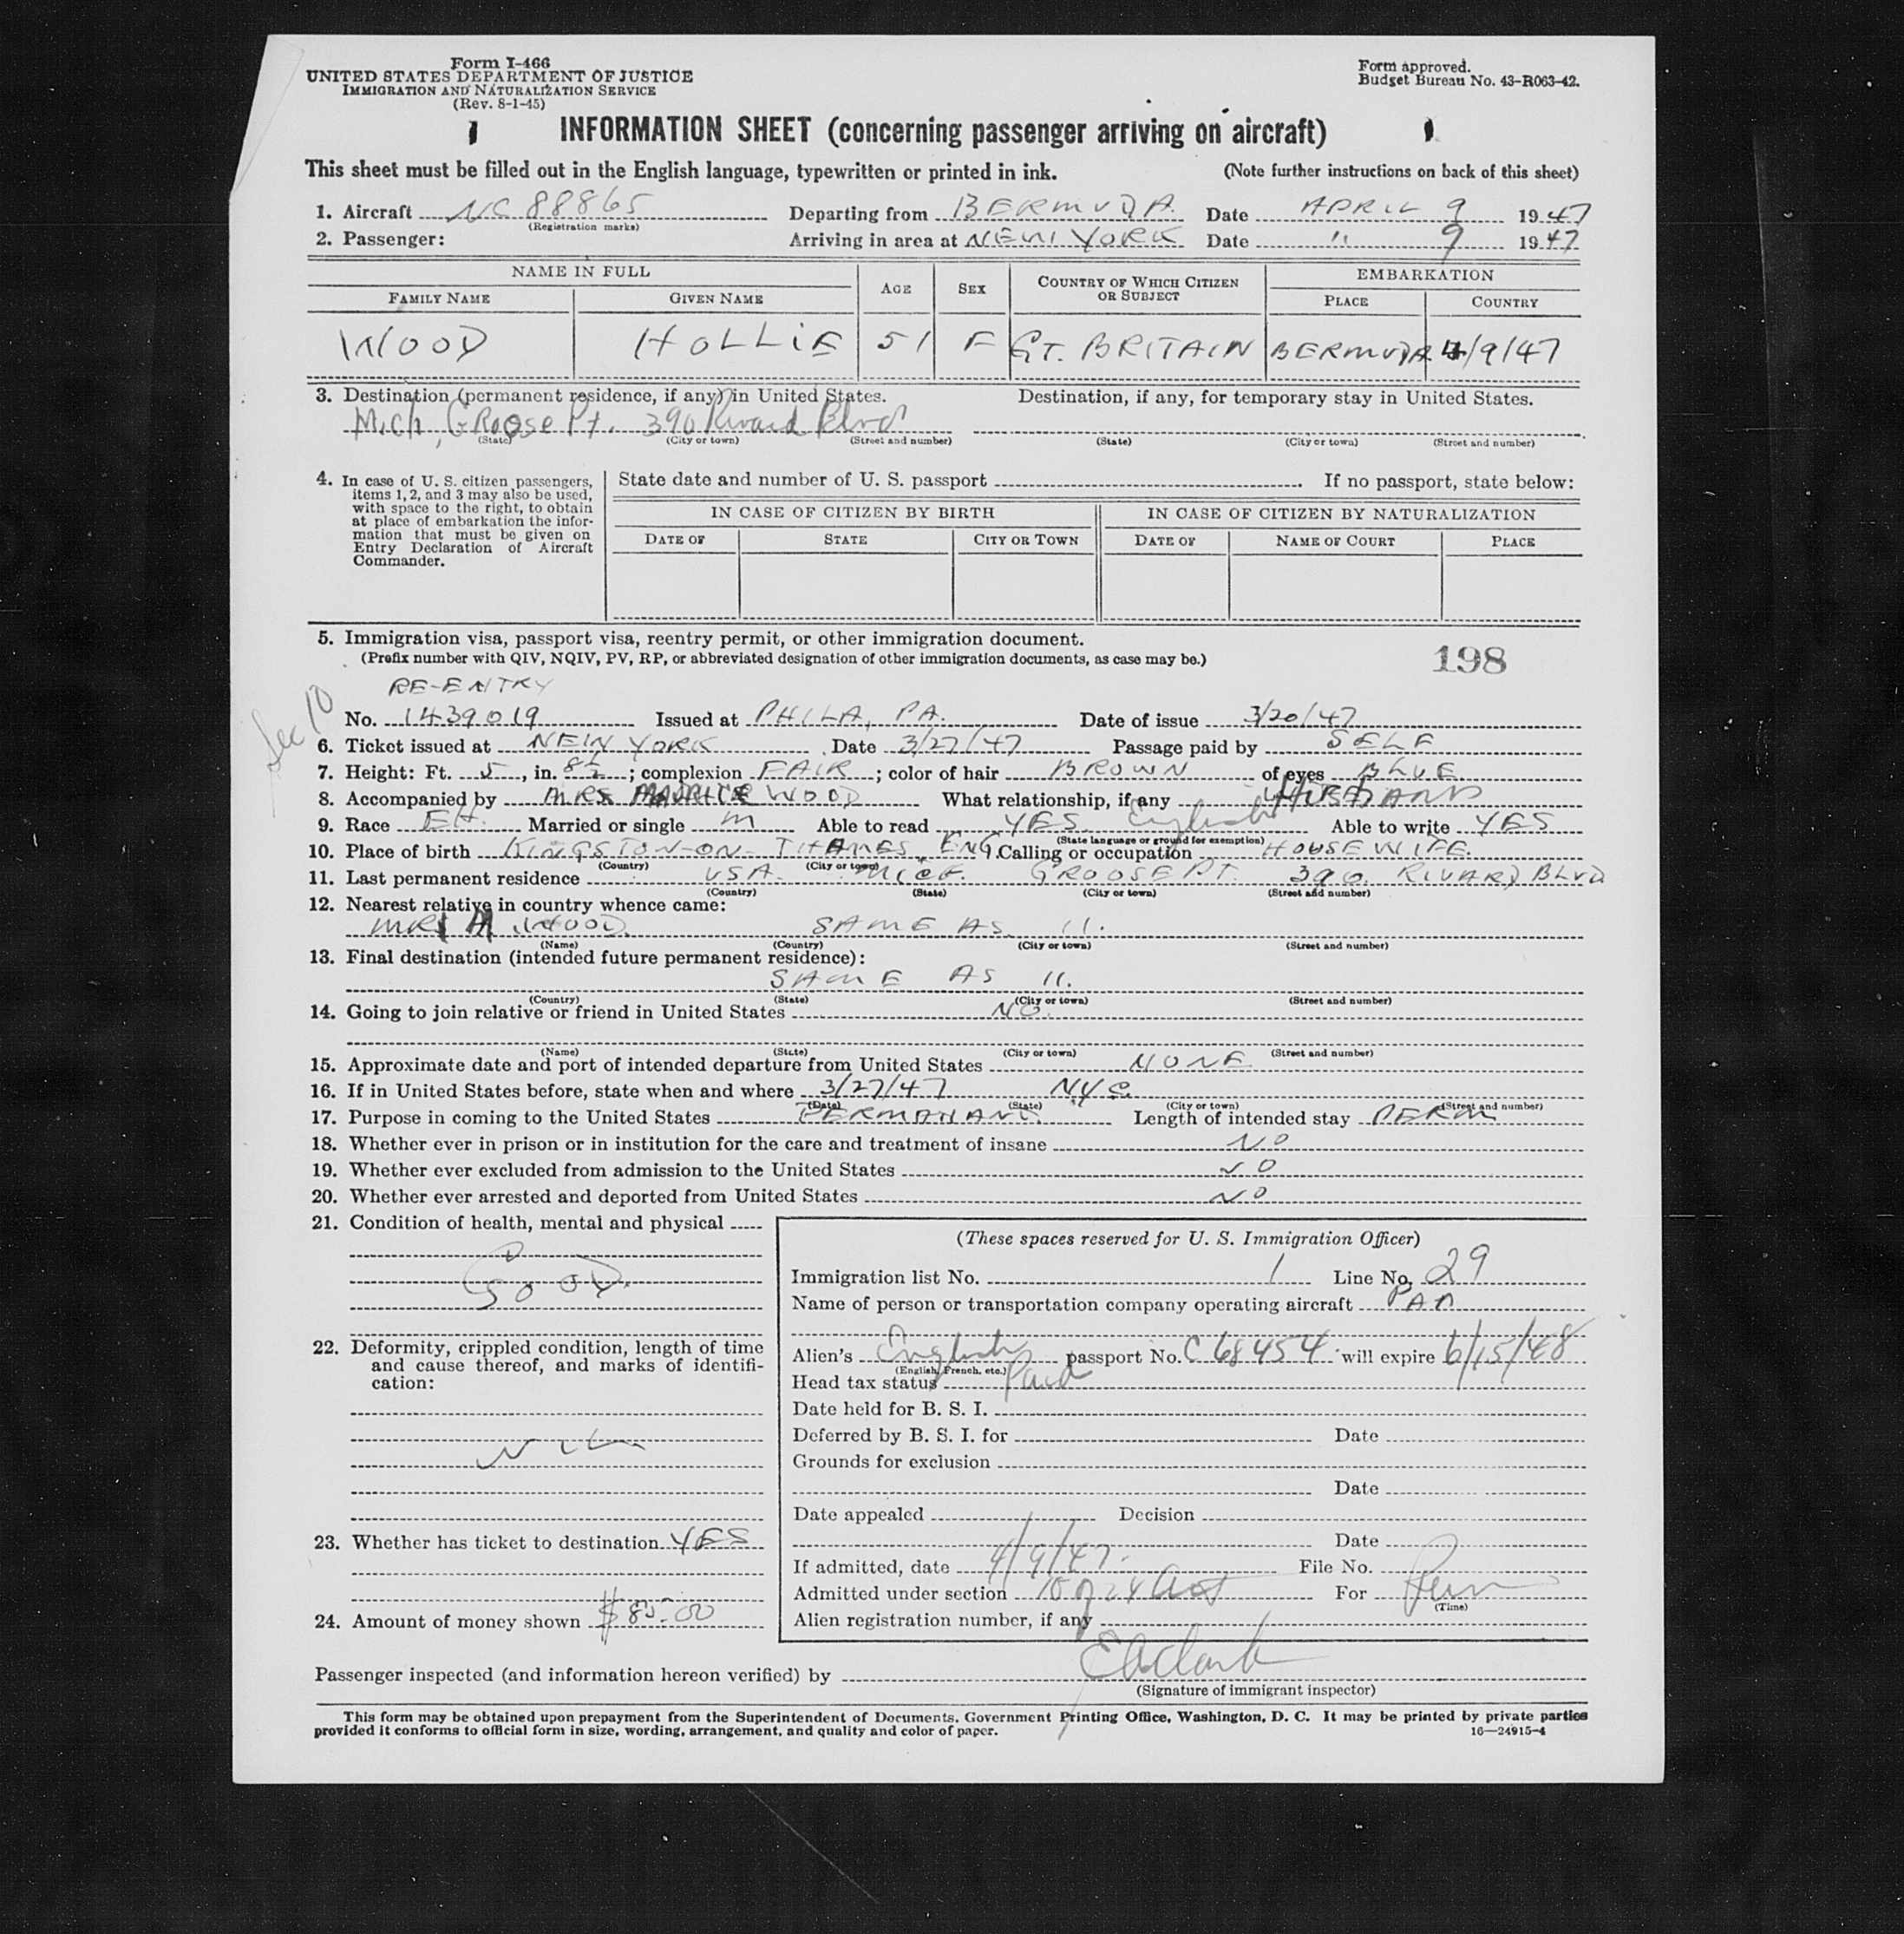 Form I-466
UNITED STATES DEPARTMENT OF JUSTICE
IMMIGRATION AND NATURALIZATION SERVICE
(Rev. 8-1-45)
Form approved.
Budget Bureau No. 43-R063-42.
INFORMATION SHEET (concerning passenger arriving on aircraft)
This sheet must be filled out in the English language, typewritten or printed in ink. (Note further instructions on back of this sheet)
1. Aircraft NC 88865 Departing from BERMUDA. Date APRIL 9 1947
(Registration marks)
2. Passenger: Arriving in area at NEW YORK Date " 9 1947
NAME IN FULL AGE SEX COUNTRY OF WHICH CITIZEN OR SUBJECT EMBARKATION
FAMILY NAME GIVEN NAME PLACE COUNTRY
WOOD HOLLIE 51 F GT. BRITAIN BERMUDA 4/9/47
3. Destination (permanent residence, if any) in United States. Destination, if any, for temporary stay in United States.
Mich, Groose Pt. 390 Rivard Blvd
(State) (City or town) (Street and number) (State) (City or town) (Street and number)
4. In case of U. S. citizen passengers, items 1, 2, and 3 may also be used, with space to the right, to obtain at place of embarkation the information that must be given on Entry Declaration of Aircraft Commander.
State date and number of U. S. passport . If no passport, state below:
IN CASE OF CITIZEN BY BIRTH IN CASE OF CITIZEN BY NATURALIZATION
DATE OF STATE CITY OR TOWN DATE OF NAME OF COURT PLACE
5. Immigration visa, passport visa, reentry permit, or other immigration document.
(Prefix number with QIV, NQIV, PV, RP, or abbreviated designation of other immigration documents, as case may be.)
198
RE-ENTRY
Sec 10
No. 1439019 Issued at PHILA, PA. Date of issue 3/20/47
6. Ticket issued at NEW YORK Date 3/27/47 Passage paid by SELF
7. Height: Ft. 5, in. 8½; complexion FAIR; color of hair BROWN of eyes BLUE
8. Accompanied by MRS MAURICE WOOD What relationship, if any HUSBAND
9. Race EH. Married or single M Able to read YES English Able to write YES
(State language or ground for exemption)
10. Place of birth KINGSTON-ON-THAMES ENG. Calling or occupation HOUSEWIFE.
(Country) (City or town)
11. Last permanent residence USA. MICH. GROOSE PT. 390. RIVARD BLVD
(Country) (State) (City or town) (Street and number)
12. Nearest relative in country whence came:
MR M. WOOD. SAME AS 11.
(Name) (Country) (City or town) (Street and number)
13. Final destination (intended future permanent residence):
SAME AS 11.
(Country) (State) (City or town) (Street and number)
14. Going to join relative or friend in United States NO.
(Name) (State) (City or town) (Street and number)
15. Approximate date and port of intended departure from United States NONE
16. If in United States before, state when and where 3/27/47 NYC.
(Date) (State) (City or town) (Street and number)
17. Purpose in coming to the United States PERMANANT. Length of intended stay PERM
18. Whether ever in prison or in institution for the care and treatment of insane NO
19. Whether ever excluded from admission to the United States NO
20. Whether ever arrested and deported from United States NO
21. Condition of health, mental and physical
GOOD.
22. Deformity, crippled condition, length of time and cause thereof, and marks of identification:
NIL
23. Whether has ticket to destination YES
24. Amount of money shown $85.00
(These spaces reserved for U. S. Immigration Officer)
Immigration list No. 1 Line No. 29
Name of person or transportation company operating aircraft PAA
Alien's English passport No. C 68454 will expire 6/15/48
(English, French, etc.)
Head tax status Paid
Date held for B. S. I.
Deferred by B. S. I. for Date
Grounds for exclusion
Date
Date appealed Decision
Date
If admitted, date 4/9/47. File No.
Admitted under section 10 of 24 Act For Perm
(Time)
Alien registration number, if any
Passenger inspected (and information hereon verified) by EAClark
(Signature of immigrant inspector)
This form may be obtained upon prepayment from the Superintendent of Documents, Government Printing Office, Washington, D. C. It may be printed by private parties
provided it conforms to official form in size, wording, arrangement, and quality and color of paper. 16—24915-4